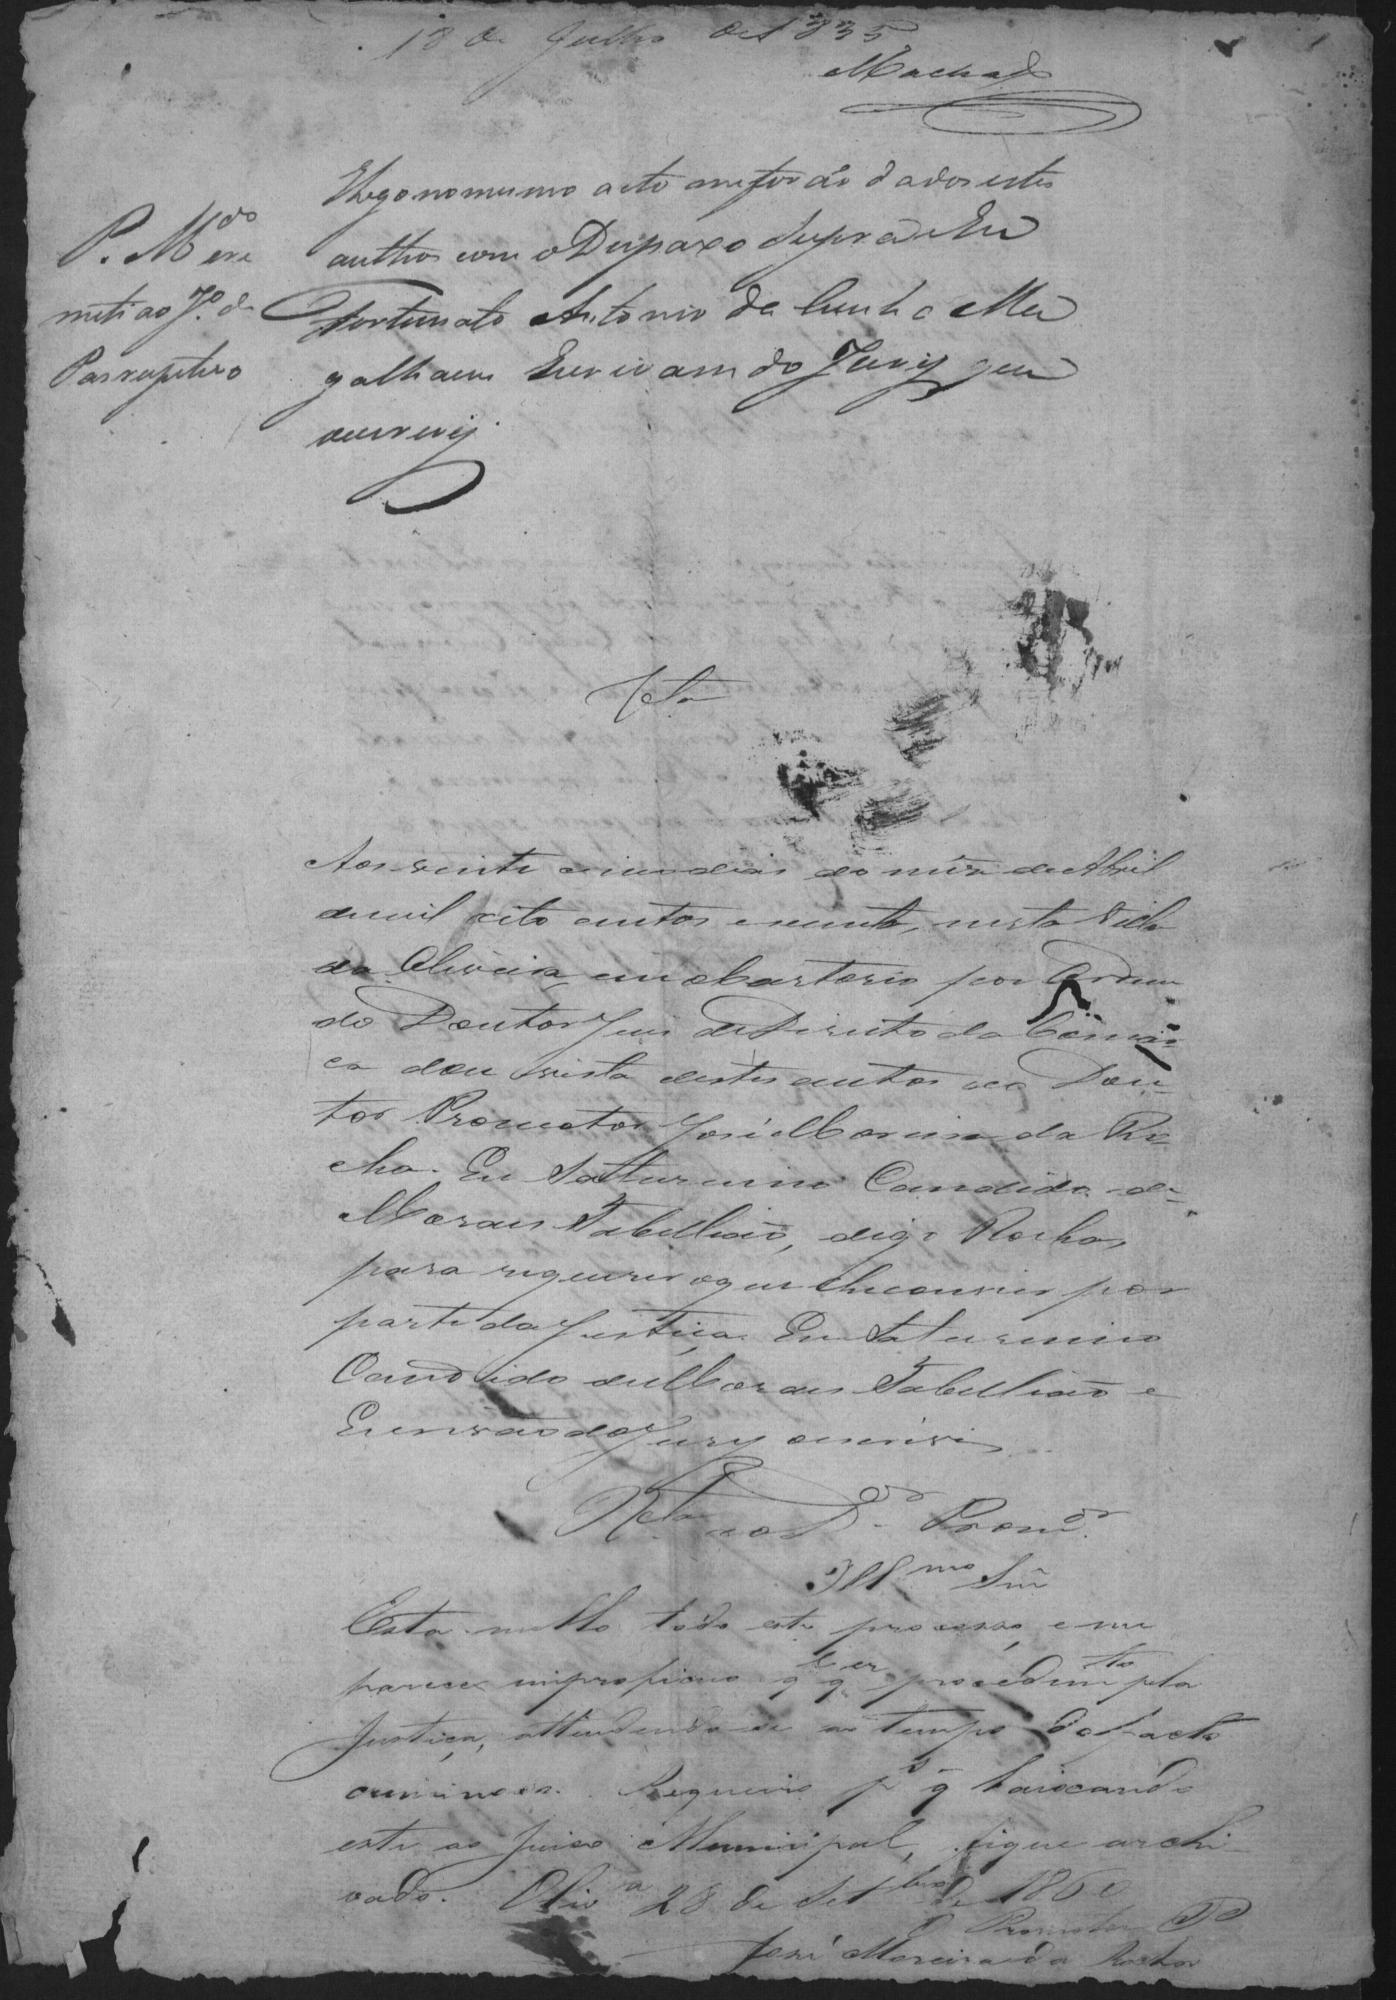 18 de Julho de 1835
Machado
E logo no mesmo acto me forão dados estes
authos com o Despaxo supra Eu
Fortunato Antonio da Cunha Ma
galhaens Escrivam do Jury que
escrevy
P. M.do ere
meti ao J.o de
Passatempo
V.ta
Aos vinte e cinco dias do mez de Abril
de mil oito centos e secenta, nesta Villa
da Oliveira em o Cartorio por Ordem
do Doutor Juis de Direito da Comar-
ca dou vista destes autos ao Dou-
tor Promotor José Moreira da Ro-
cha. Eu Satturnino Candido de
Moraes Tabellião, digo Rocha,
para requerer o que lhe convier por
parte da Justiça. Eu Saturnino
Candido de Moraes Tabellião e
Escrivão do Jury escrevi
V.ta ao D.or Prom.or
Ill.mo Snr
Esta nullo todo este processo, e me
parece improficuo q.l q.er procedim.to pela
Justiça, attendendo-se ao tempo do facto
criminoso. Requeiro p.s q baixando
este ao Juizo Municipal, fique archi-
vado. Oliv.a 28 de Set.bro de 1860
O Promotor P.o
José Moreira da Rocha